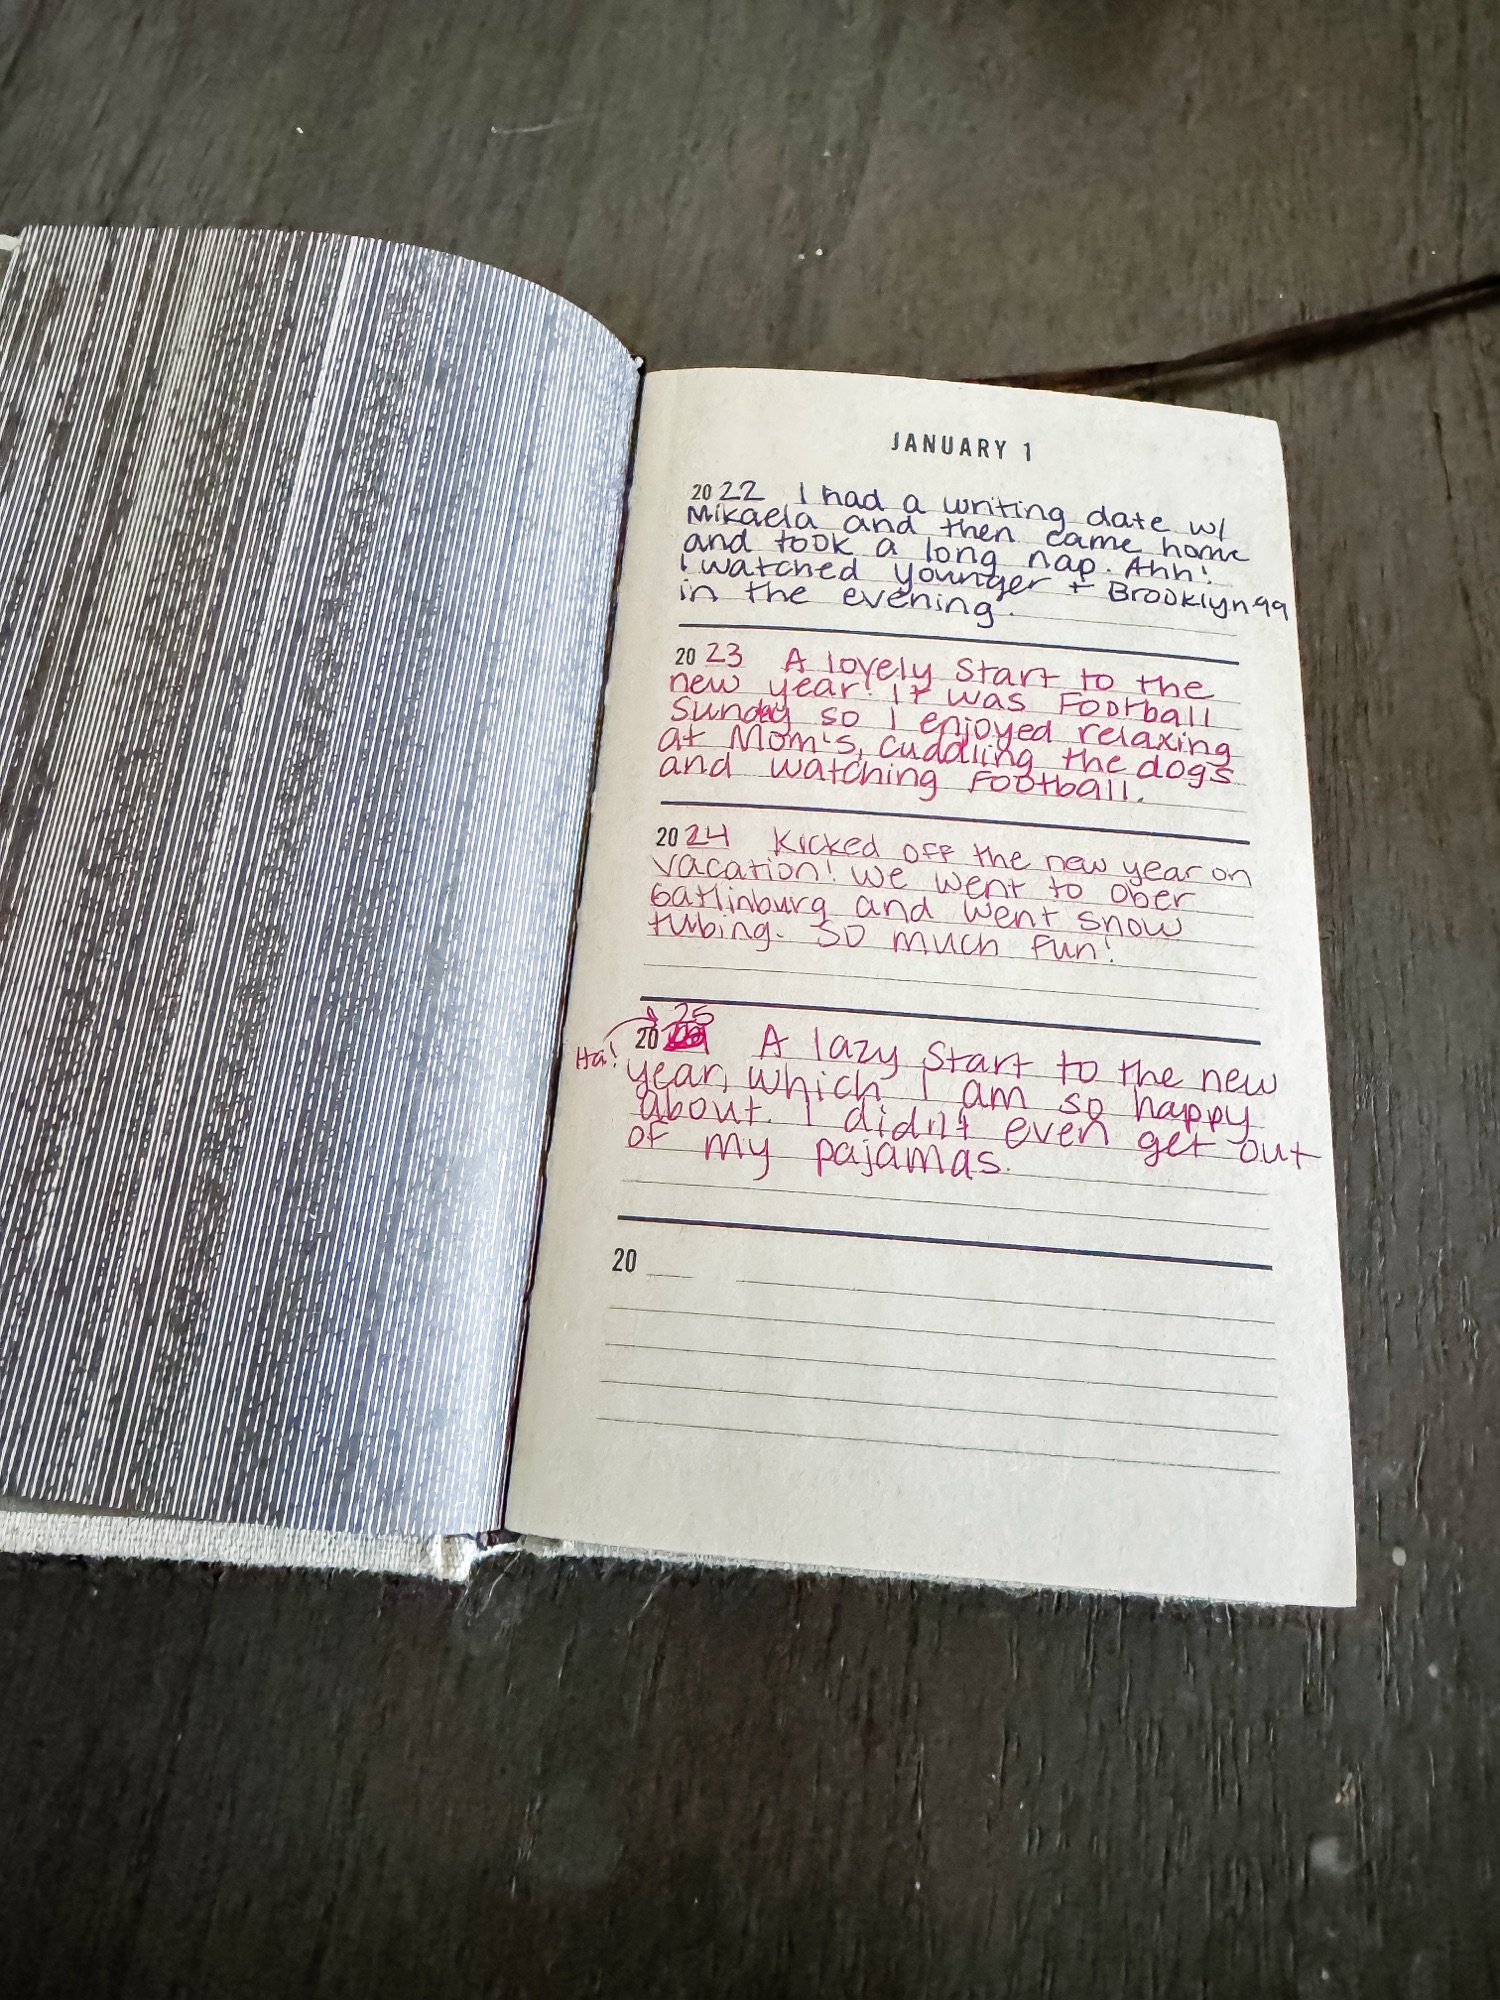 JANUARY 1
2022 I had a writing date w/
Mikaela and then came home
and took a long nap. Ahh!
I watched younger + Brooklyn 99
in the evening.
2023 A lovely start to the
new year! It was Football
Sunday so I enjoyed relaxing
at Mom's, cuddling the dogs
and watching Football.
2024 Kicked off the new year on
vacation! We went to Ober
Gatlinburg and went snow
tubing. So much fun!
25
20 A lazy start to the new
Ha!
year, which I am so happy
about. I didn't even get out
of my pajamas.
20